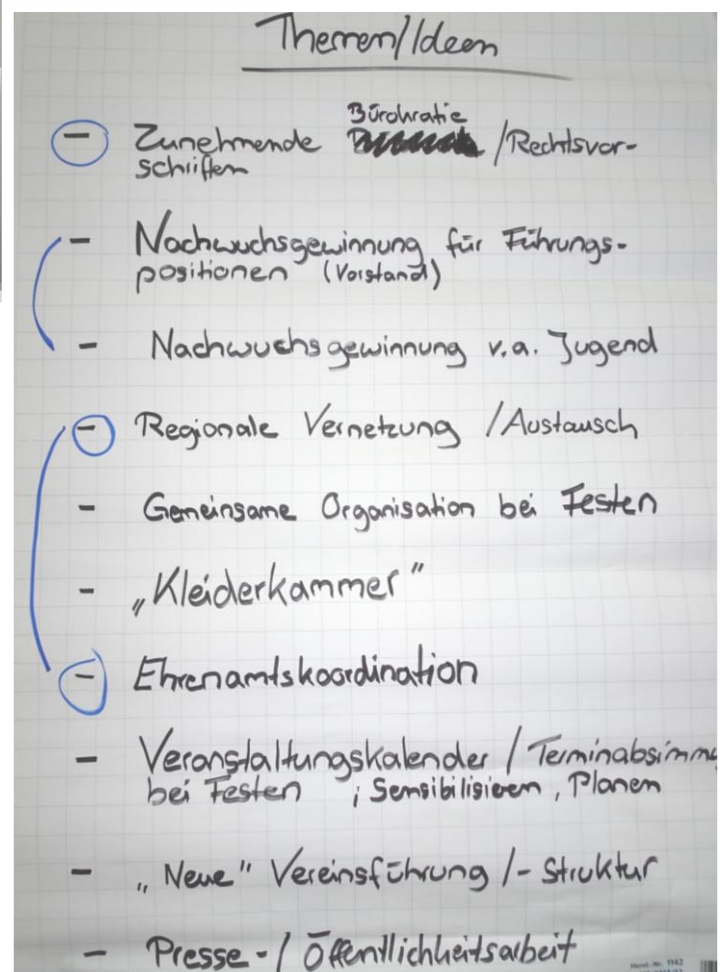 Themen/Ideen
Bürokratie
- Zunehmende /Rechtsvor-
schriften
- Nachwuchsgewinnung für Führungs-
positionen (Vorstand)
- Nachwuchsgewinnung v.a. Jugend
- Regionale Vernetzung /Austausch
- Gemeinsame Organisation bei Festen
- „Kleiderkammer"
- Ehrenamtskoordination
- Veranstaltungskalender / Terminabsimmu
bei Festen ; Sensibilisieren, Planen
- „Neue" Vereinsführung /- Struktur
- Presse- / Öffentlichkeitsarbeit